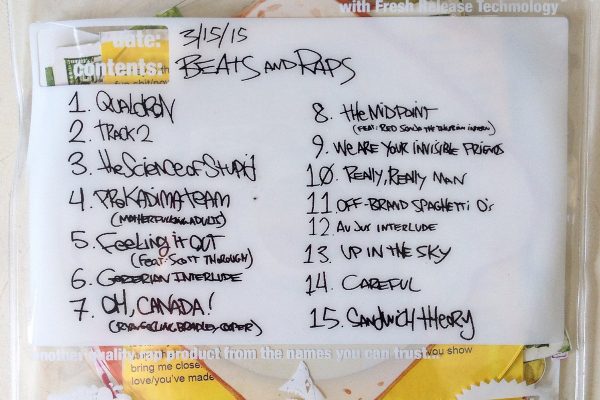 with Fresh Release Technology
date: 3/15/15
contents: BEATS AND RAPS
1. QUALDRON
2. TRACK 2
3. the Science of Stupid
4. PROKADIMA TEAM
(MOTHERFUCKING ADULTS)
5. Feeling it OUT
(FEAT. SCOTT THOROUGH)
6. INTERLUDE
7. OH, CANADA!
BRADLEY COOPER)
8. the MIDPOINT
(FEAT. RED
9. WE ARE YOUR INVISIBLE FRIENDS
10. REALLY, REALLY MAN
11. OFF-BRAND SPAGHETTI O's
12. AU JUS INTERLUDE
13. UP IN THE SKY
14. CAREFUL
15. SANDWICH THEORY
another quality rap product from the names you can trust...
bring me close
love/you've made
you show